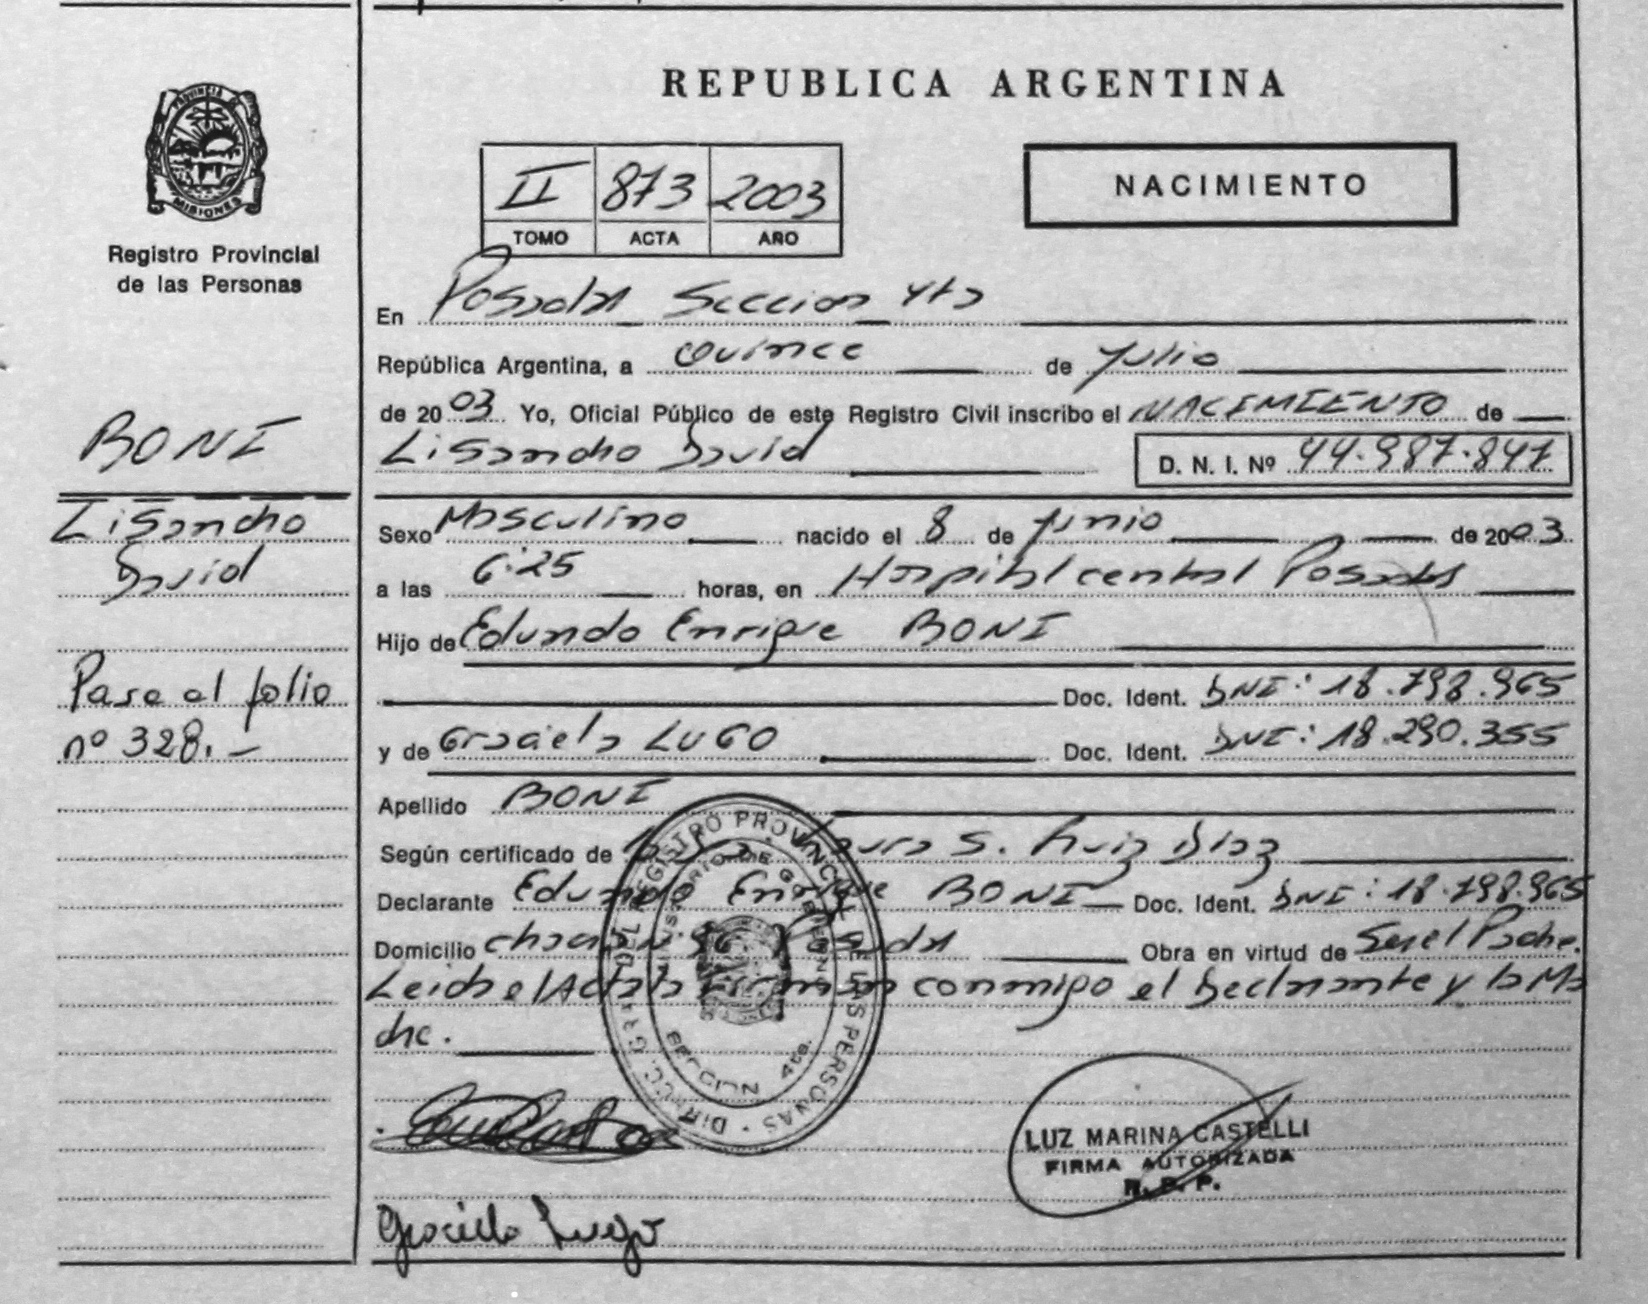 REPUBLICA ARGENTINA
PROVINCIA DE
MISIONES
Registro Provincial
de las Personas
II 873 2003
TOMO ACTA AÑO
NACIMIENTO
En Posadas Seccion 4ta
República Argentina, a Quince de Julio
de 2003 Yo, Oficial Público de este Registro Civil inscribo el NACIMIENTO de
Lisandro David D. N. I. Nº 44.987.847
BONI
Lisandro
David
Pase al folio
nº 328.-
Sexo Masculino nacido el 8 de Junio de 2003
a las 6:25 horas, en Hospital central Posadas
Hijo de Eduardo Enrique BONI
Doc. Ident. DNI: 18.798.965
y de Graciela LUGO Doc. Ident. DNI: 18.290.355
Apellido BONI
Según certificado de Laura S. Ruiz Diaz
Declarante Eduardo Enrique BONI Doc. Ident. DNI: 18.798.965
Domicilio Posadas Obra en virtud de Ser el Padre.
Leida el Acta la Firman conmigo el Declarante y la Ma
dre.
REGISTRO PROVINCIAL DE LAS PERSONAS
MINISTERIO DE GOBIERNO
SECCION 4ta.
LUZ MARINA CASTELLI
FIRMA AUTORIZADA
R. P. P.
Graciela Lugo